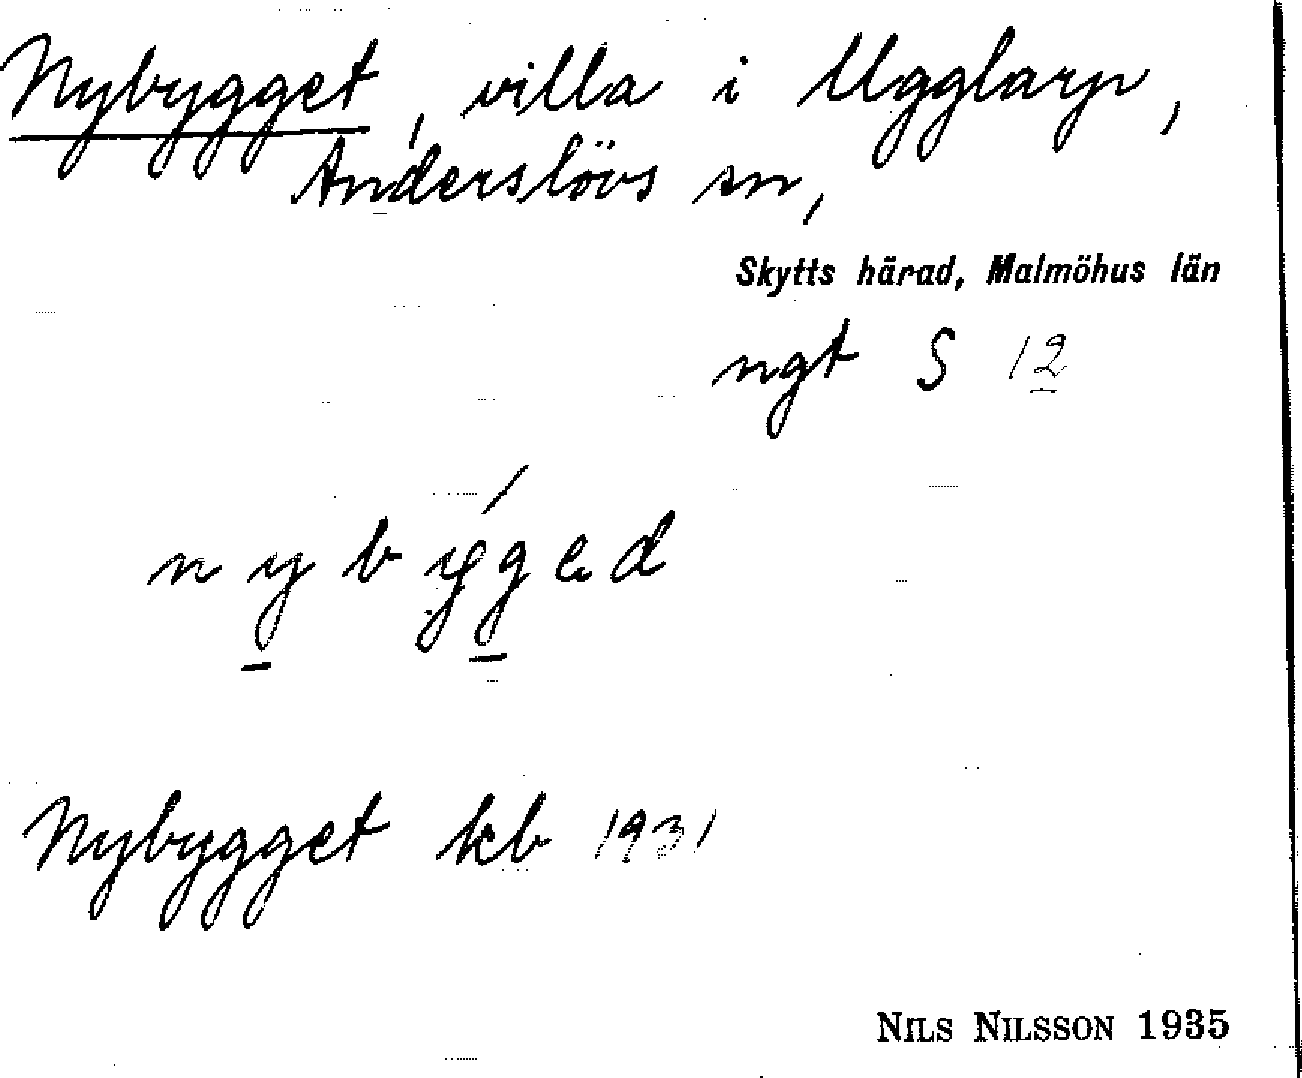 Nybygget, villa i Ugglarp,
Anderslövs sn,
Skytts härad, Malmöhus län
ngt S 12
nybygged
Nybygget kb 1931
NILS NILSSON 1935